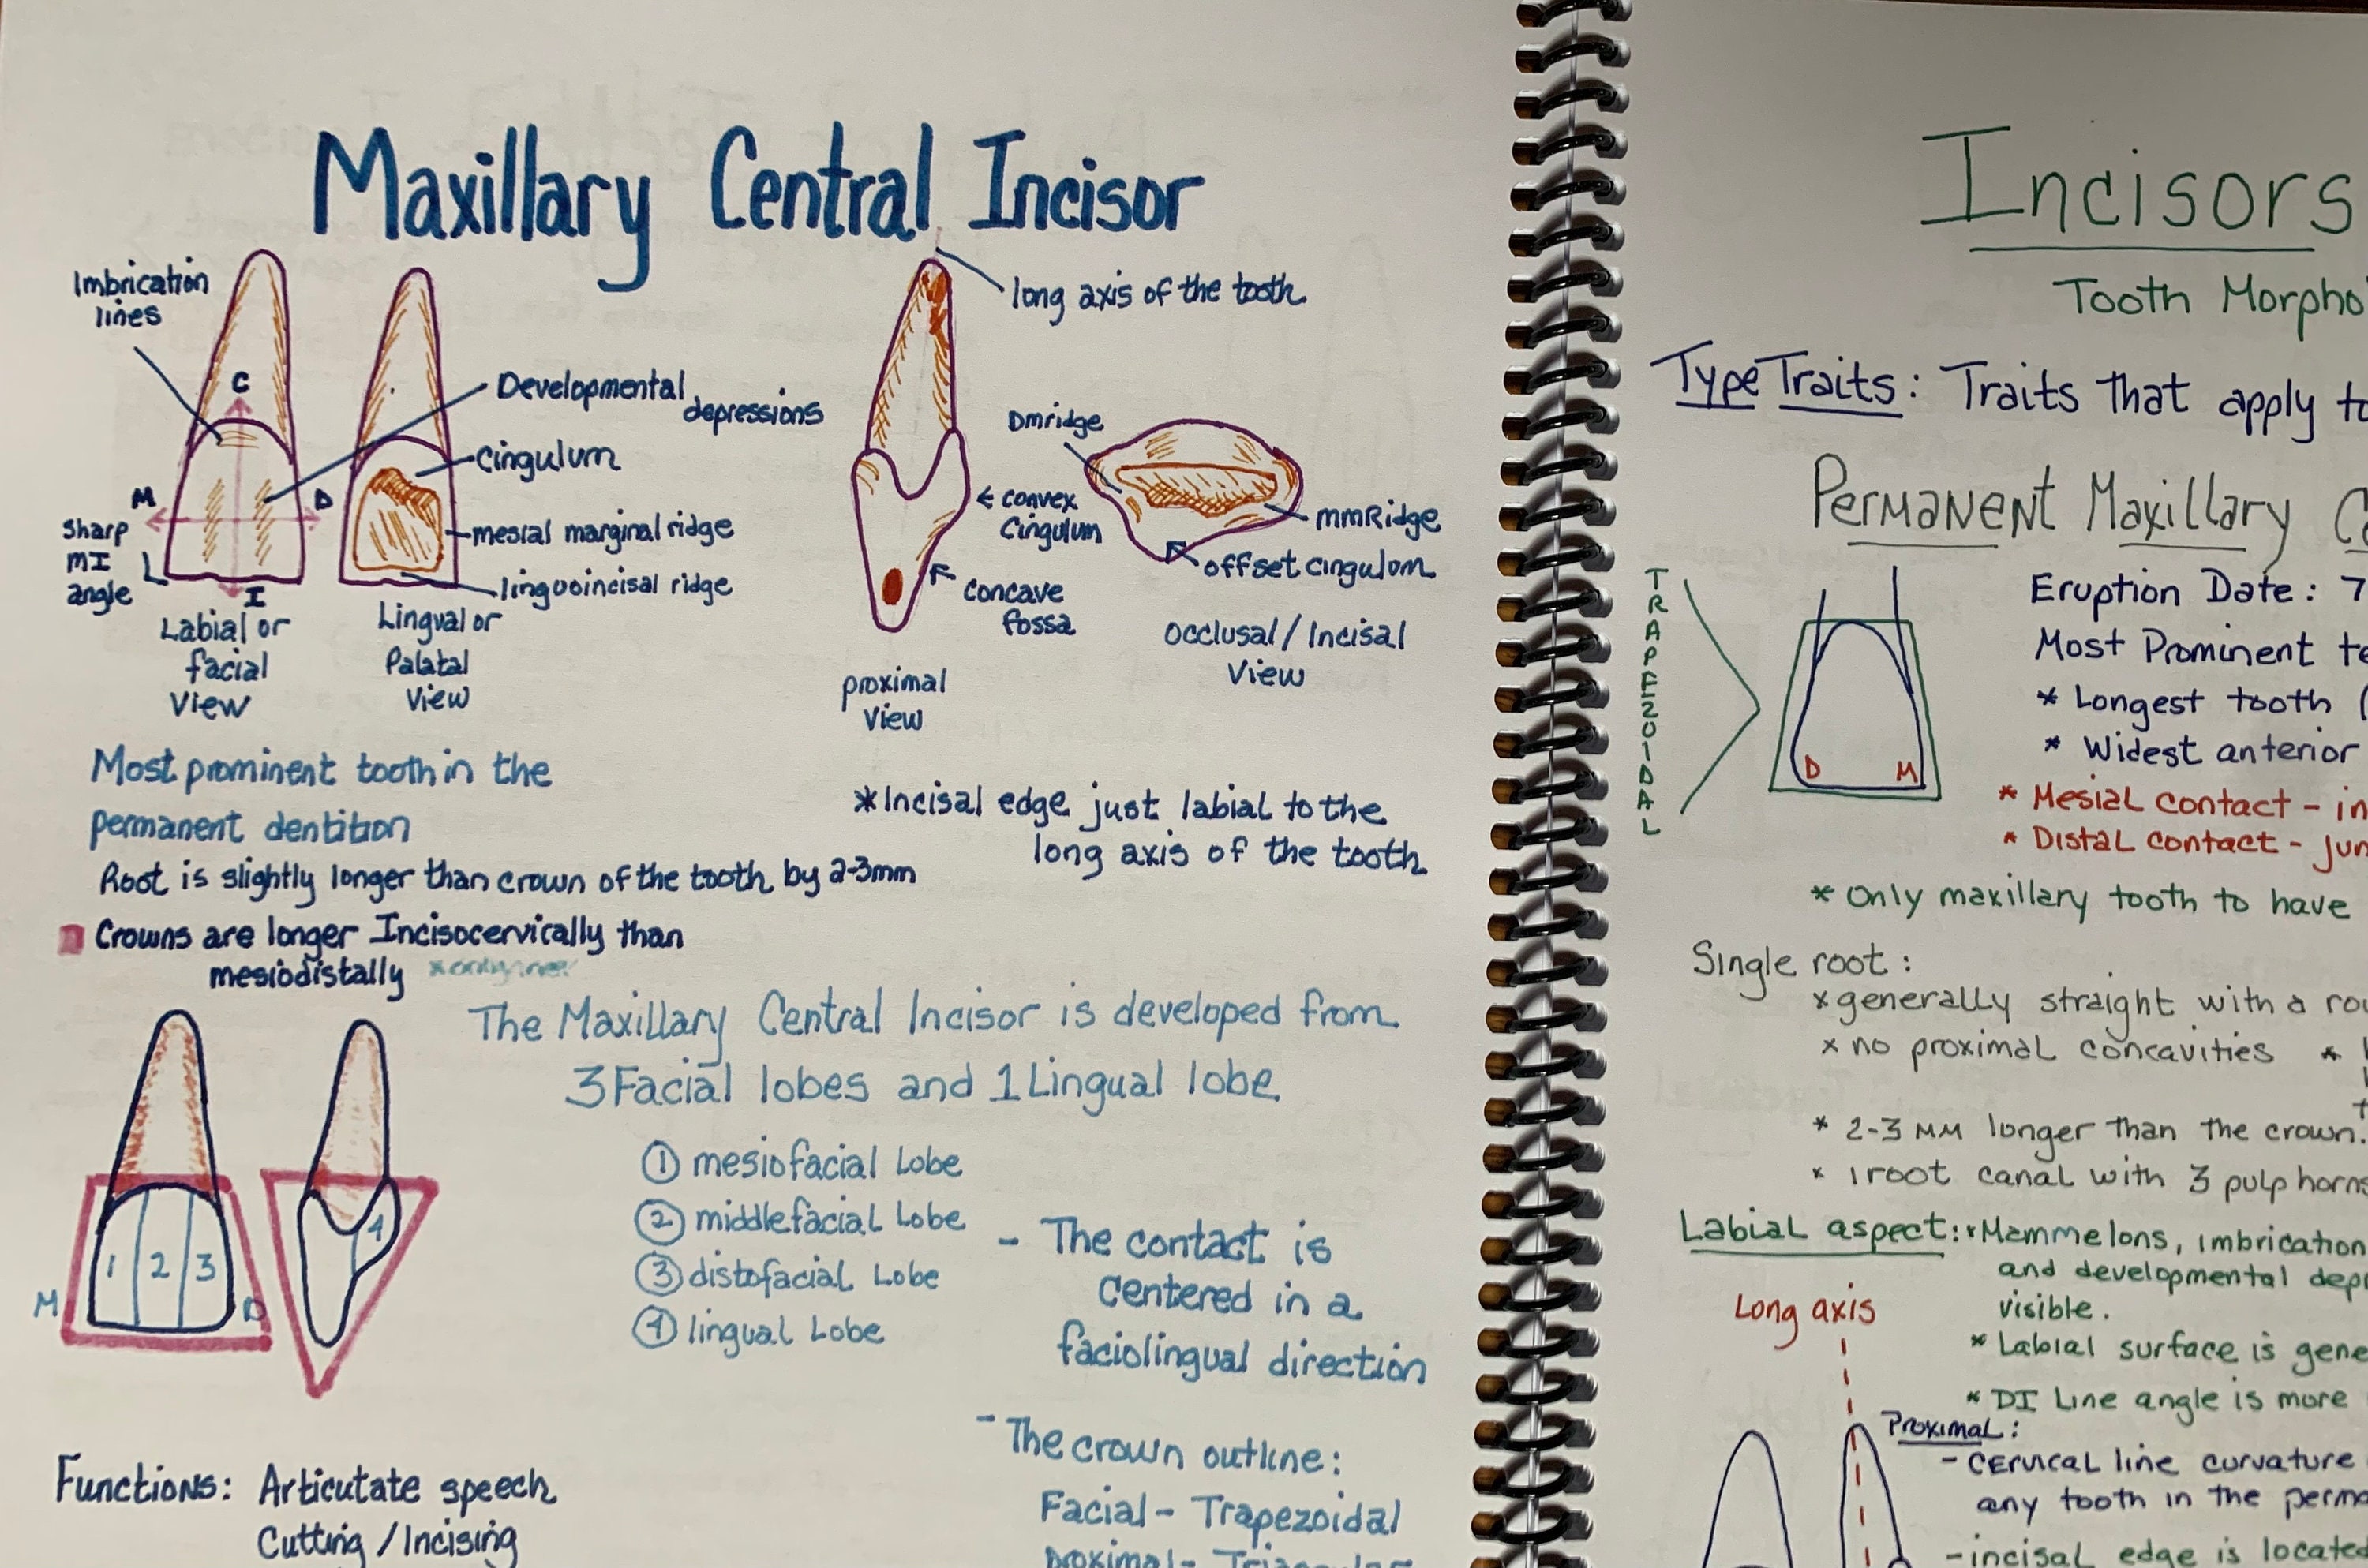 Maxillary Central Incisor
Imbrication
lines
C
M
D
I
sharp
mI
angle
Labial or
facial
View
Developmental
depressions
Cingulum
mesial marginal ridge
linguoincisal ridge
Lingual or
Palatal
View
long axis of the tooth
convex
Cingulum
concave
fossa
proximal
View
Dmridge
mmRidge
offset cingulum
occlusal / Incisal
View
Most prominent tooth in the
permanent dentition
Root is slightly longer than crown of the tooth by 2-3mm
Crowns are longer Incisocervically than
mesiodistally
*Incisal edge just labial to the
long axis of the tooth
The Maxillary Central Incisor is developed from
3 Facial lobes and 1 Lingual lobe
1 mesiofacial Lobe
2 middlefacial Lobe
3 distofacial Lobe
4 lingual Lobe
1 2 3
4
M
D
- The contact is
Centered in a
faciolingual direction
- The crown outline:
Facial - Trapezoidal
Functions: Articutate speech
Cutting / Incising
Incisors
Tooth
Type Traits: Traits that apply
Permanent Maxillary
TRAPEZOIDAL
D M
Eruption Date: 7
Most Prominent
* Longest tooth (
* Widest anterior
* Mesial contact -
* Distal contact -
* Only maxillary tooth to have
Single root:
x generally straight with a
x no proximal concavities *
* 2-3 MM longer than the crown.
* 1 root canal with 3 pulp horns
Labial aspect: * Mammelons, imbrication
and developmental
visible.
* Labial surface is
* DI Line angle is more
Long axis
Proximal:
- Cervical line curvature
any tooth in the
- incisal edge is located